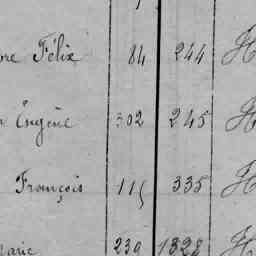 re Félix 84 244 H
Eugène 302 245 H
François 115 335 H
Marie 239 1328 H